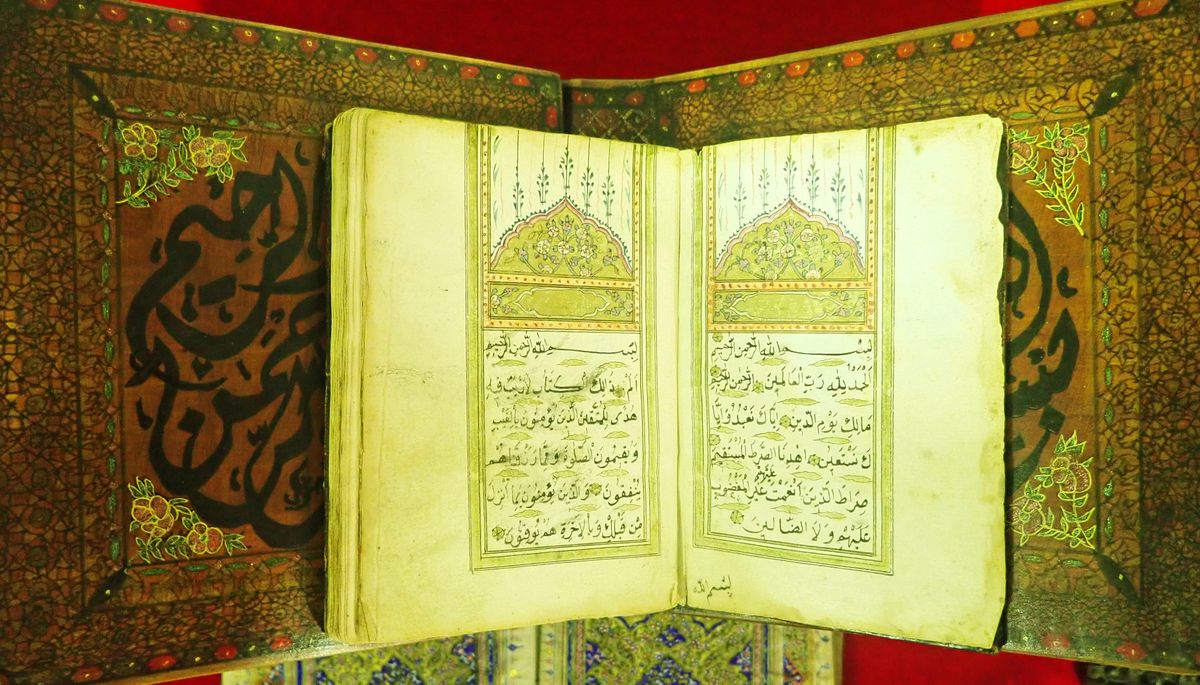 بسم الله الرحمن الرحيم
الحمد لله رب العالمين الرحمن الرحيم
مالك يوم الدين اياك نعبد وايا
ك نستعين اهدنا الصراط المستقيم
صراط الذين انعمت عليهم غير المغضوب
عليهم ولا الضالين
بسم الله
بسم الله الرحمن الرحيم
الم ذلك الكتاب لا ريب فيه
هدى للمتقين الذين يؤمنون بالغيب
ويقيمون الصلوة ومما رزقناهم
ينفقون والذين يؤمنون بما انزل
من قبلك وبالاخرة هم يوقنون
الرحمن
الرحيم